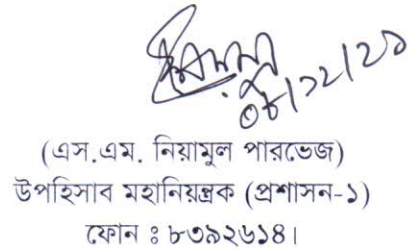 ০৮/১২/২১
(এস.এম. নিয়ামুল পারভেজ)
উপহিসাব মহানিয়ন্ত্রক (প্রশাসন-১)
ফোন ঃ ৮৩৯২৬১৪।